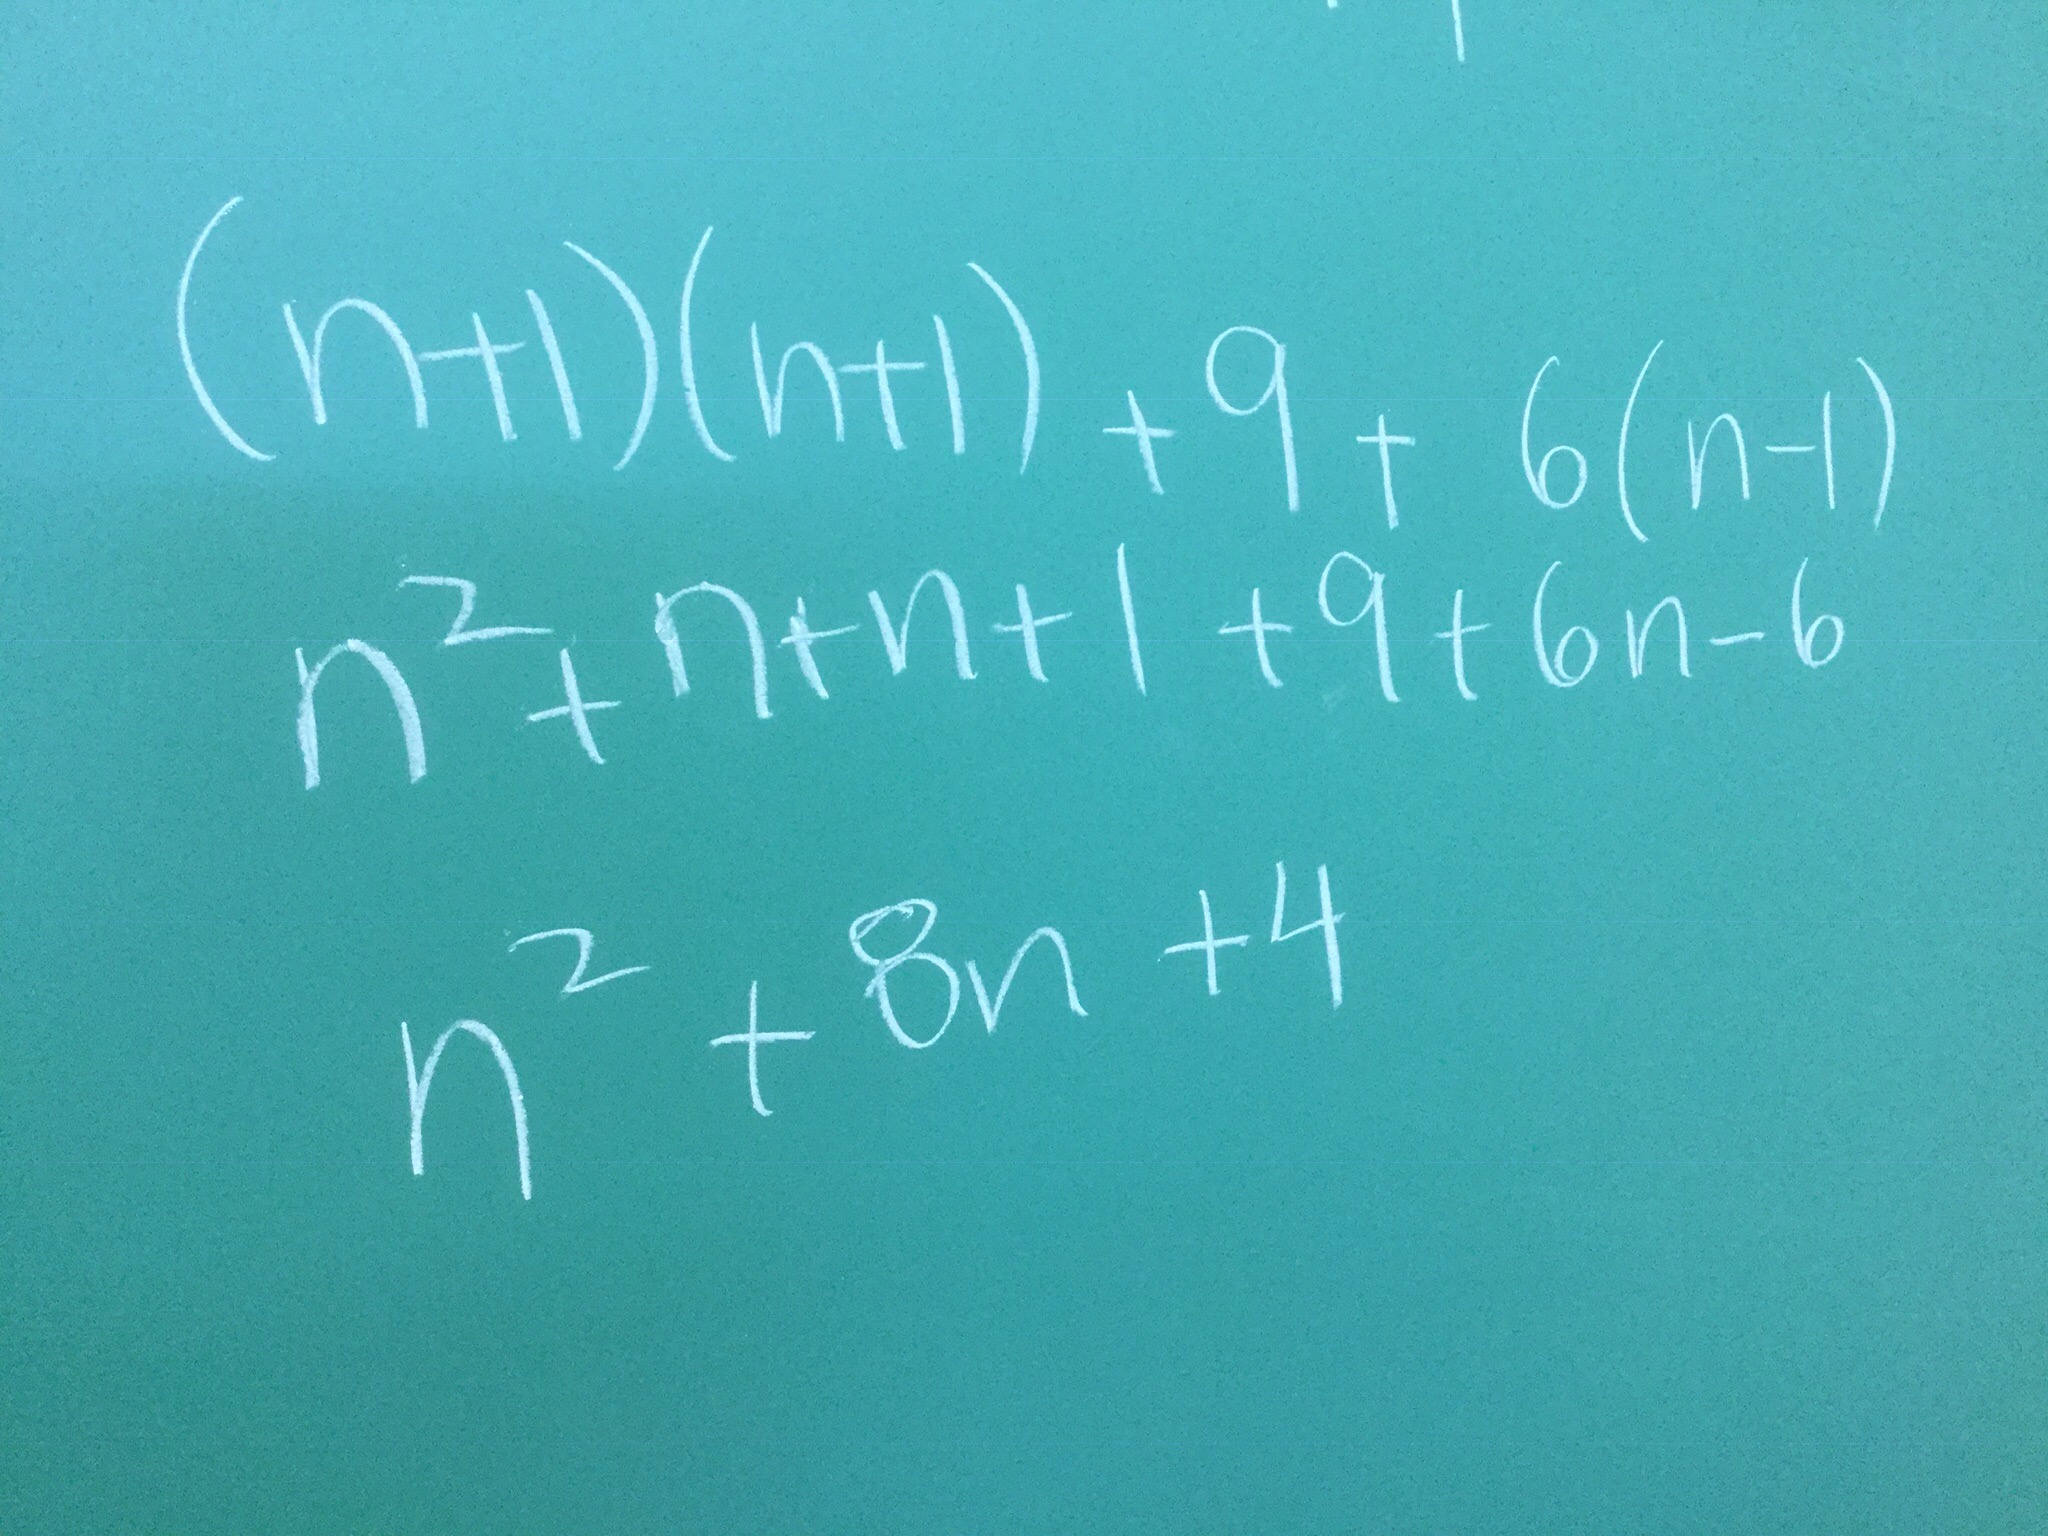 (n+1)(n+1) + 9 + 6(n-1)
n² + n + n + 1 + 9 + 6n - 6
n² + 8n + 4